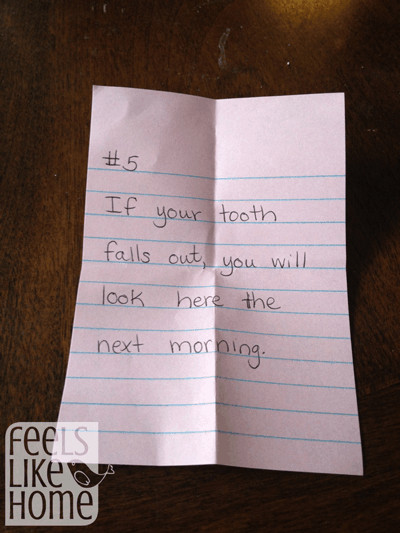 #5
If your tooth
falls out, you will
look here the
next morning.
FEELS
LIKE
HOME